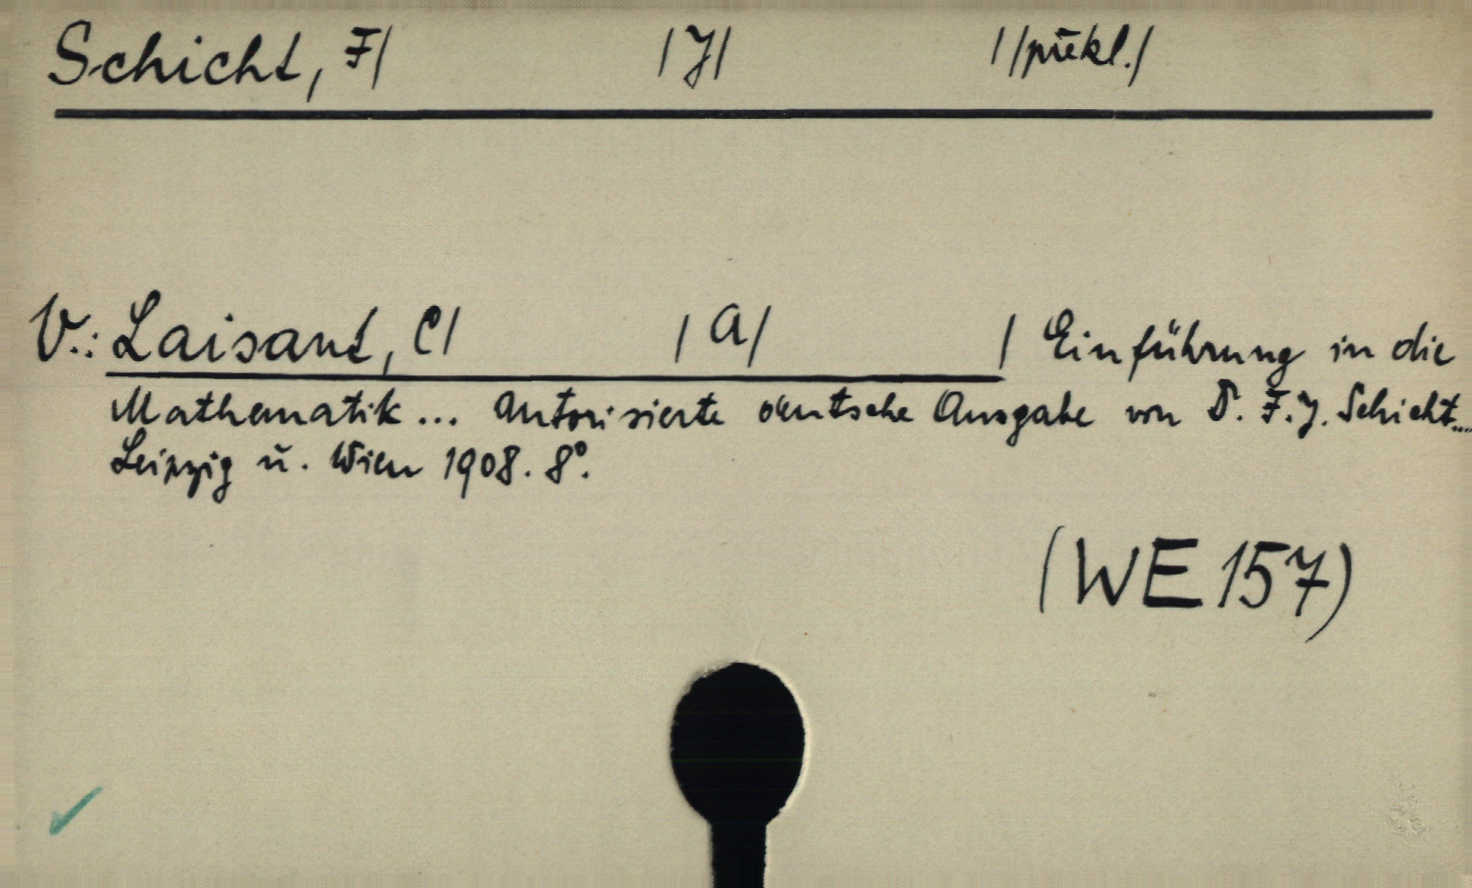 Schicht, F/ /J/ //překl./
V.: Laisant, C/ /A/ / Einführung in die
Mathematik... Autorisierte deutsche Ausgabe von D. F. J. Schicht...
Leipzig u. Wien 1908. 8°.
(WE 157)